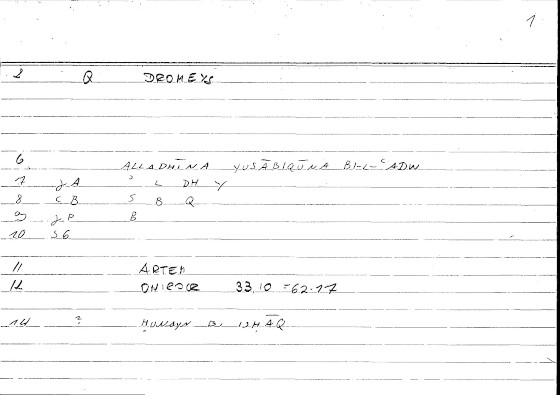 1
2 Q DROMEYS
6 ALLADHĪNA YUSĀBIQŪNA BI-L-ʿADW
7 gA ʾ L DH Y
8 CB S B Q
9 gP B
10 SG
11 ARTEM
12 ONIROCR 33,10 =62.17
14 ? ḤUNAYN B. ISḤĀQ